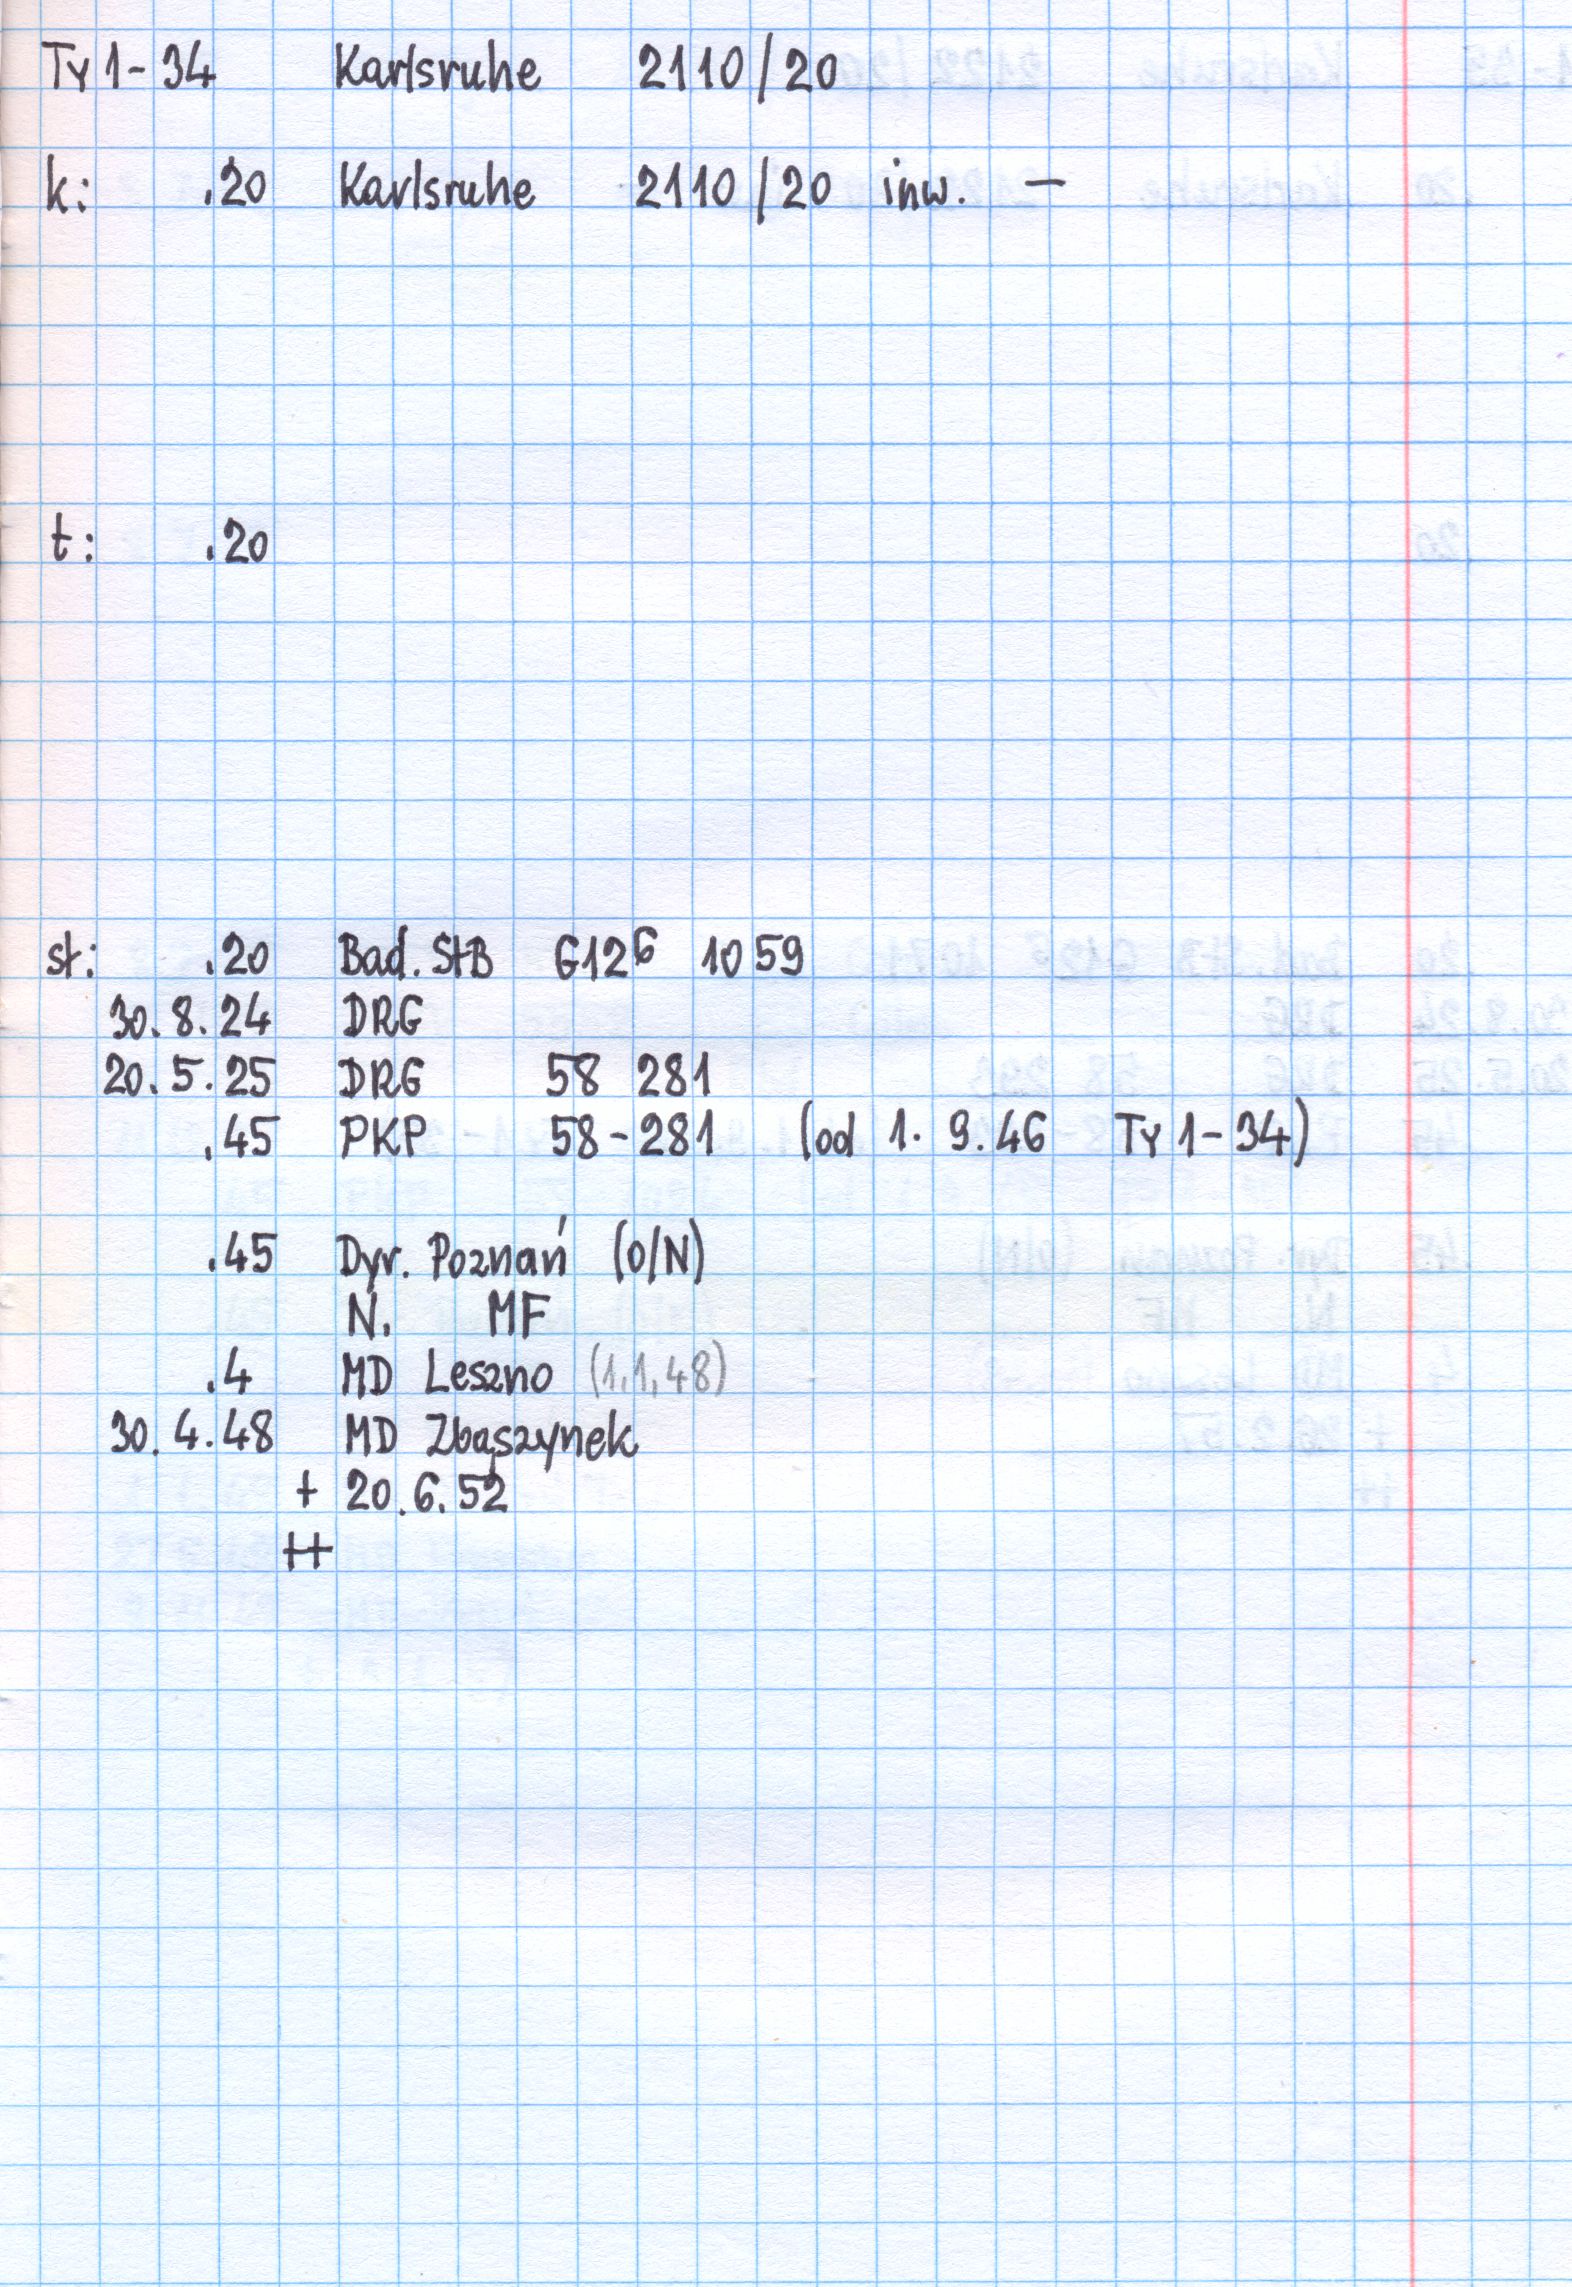 Ty1-34 Karlsruhe 2110/20
k: .20 Karlsruhe 2110/20 inw. –
t: .20
st: .20 Bad. StB G12⁶ 1059
30.8.24 DRG
20.5.25 DRG 58 281
.45 PKP 58-281 (od 1.9.46 Ty1-34)
.45 Dyr. Poznań (O/N)
N. MF
.4 MD Leszno (1.1.48)
30.4.48 MD Zbąszynek
+ 20.6.52
++